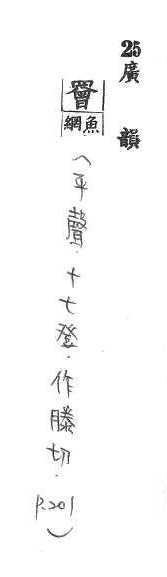 25廣韻
罾
魚網
(平聲.十七登.作滕切.P.201)